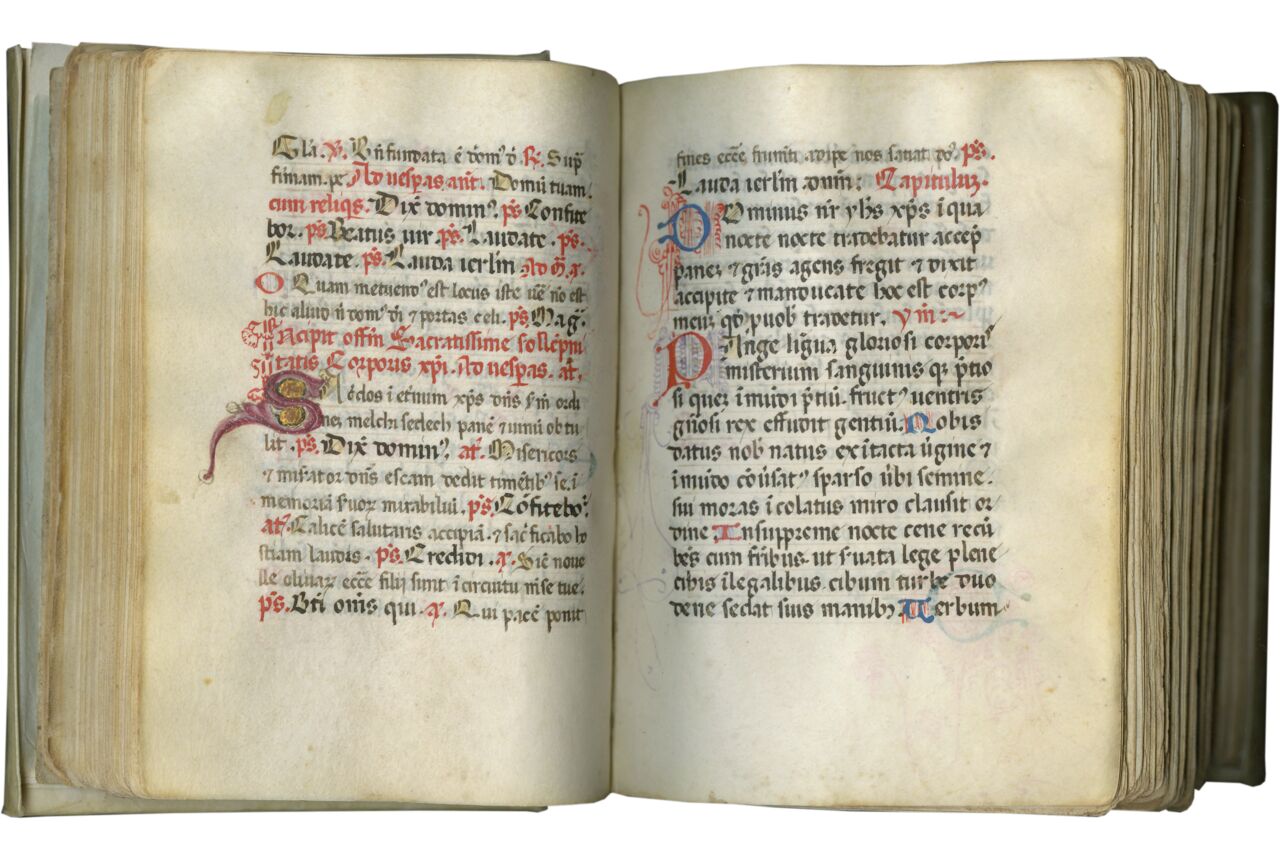 Gla. V. Bñ fundata ē dom' d. R. Sup
firmam. pe Ad vesp̃as ant. Domū tuam.
cum reliqs. Dix̃ domin'. ps Confite
bor. ps Beatus vir ps. Laudate. ps.
Laudate. ps. Lauda ierl̃m Ad m̃.a.
O Quam metuend' est locus iste ue᷉ nō est
hic aliud ñ dom' dī & portas celi. ps. Mag̃.
Incipit offm̃ Sacratissime sollẽpni
tatis Corporis xp̃i. Ad vesp̃as. at.
Sacẽdos ī etnum xp̄s dñs s̃m ordi
nes melchisedech panē & uinū obtu
lit. ps. Dix̃ domin'. at. Misericors
& misãtor dñs escam dedit timētib' se. ī
memoriā suoꝝ mirabiliū. ps. Cōfitebo'.
at. Calicē salutaris accipiā. & sac̃ficabo ho
stiam laudis. ps. Credidi. a. Sic̄ noue
lle oliuaꝝ ecc̄e filij sunt ī circuitu mēse tue.
ps. Bt̄i om̄s qui. a. Qui pacē ponit
fines ecc̄e frum̄ti adipe nos satiat dñs. ps.
Lauda ierl̃m dñm: Capituluꝫ.
Dominus nr̄ yhs xp̄s ī qua
nocte nocte tradebatur accep̃
paneꝫ & gr̄as agens fregit & dixit
accipite & manducate hoc est corp'
meuꝫ qđ p uob tradetur. ym̄:~
Pange ligua gloriosi corpori'
misterium sanguinis qꝫ p̄tio
si queꝫ ī mūdi p̄tiū. fruct' uentris
gñosi rex effudit gentiū. Nobis
datus nob' natus ex ītacta ūgine &
ī mūdo cōūsat' sparso ūbi semine.
sui moras īcolatus miro clausit or
dine Insuppreme nocte cene recū
bēs cum frībus. ut s'uata lege plene
cibis ī legalibus. cibum turbe duo
dene se dat suis manibꝫ Uerbum